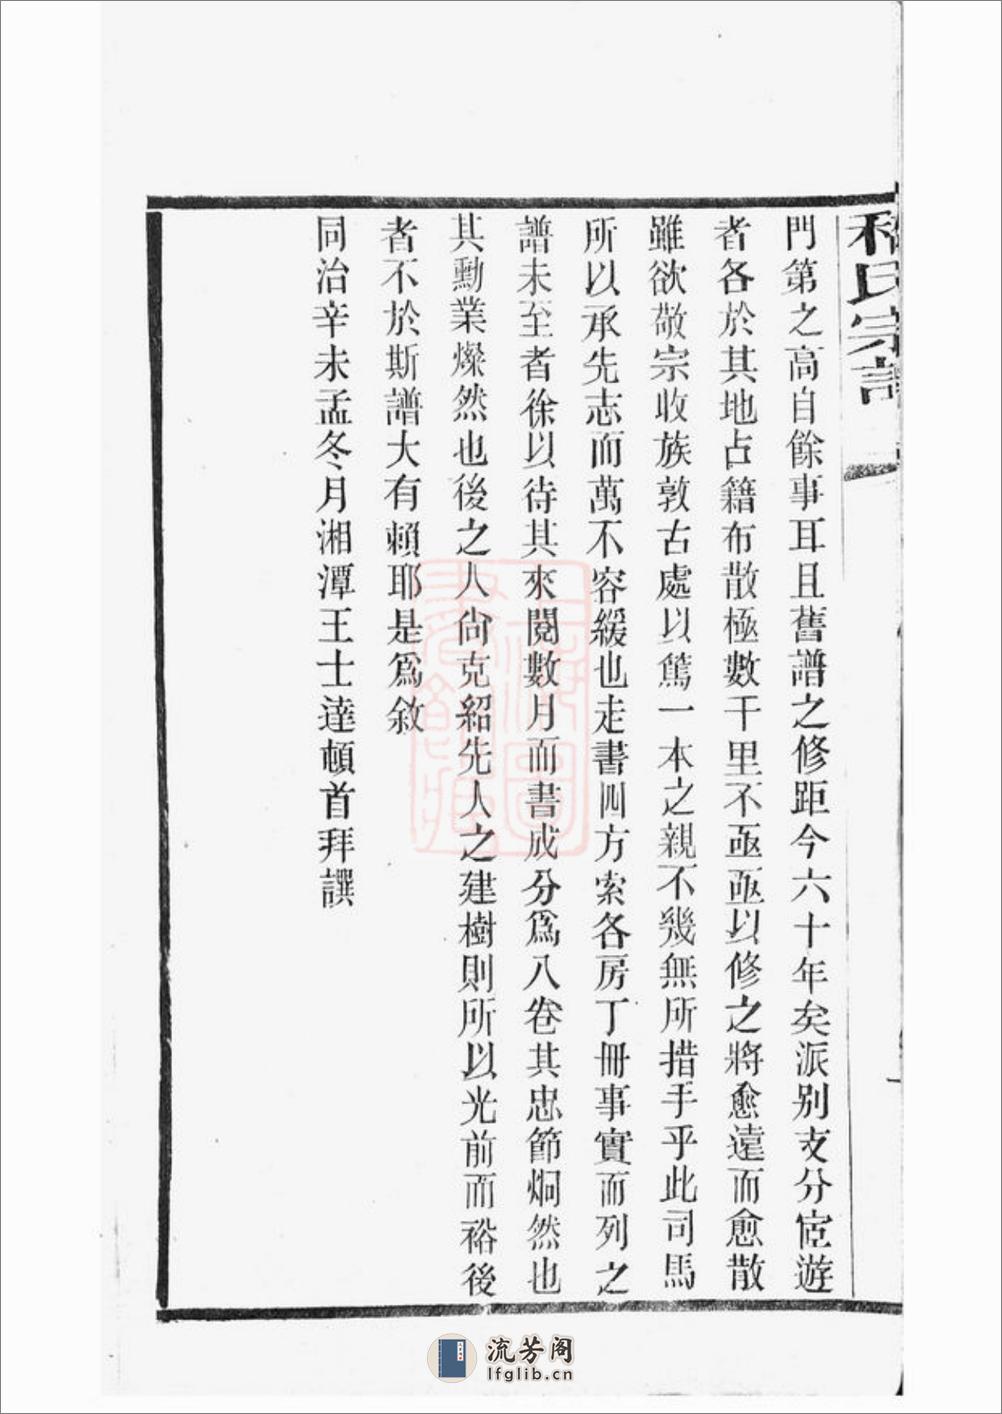 氏宗譜
門第之高自餘事耳且舊譜之修距今六十年矣派別支分宦遊
者各於其地占籍布散極數千里不亟亟以修之將愈遠而愈散
雖欲敬宗收族敦古處以篤一本之親不幾無所措手乎此司馬
所以承先志而萬不容緩也走書四方索各房丁冊事實而列之
譜未至者徐以待其來閱數月而書成分爲八卷其忠節炯然也
其勳業燦然也後之人尙克紹先人之建樹則所以光前而裕後
者不於斯譜大有賴耶是爲敘
同治辛未孟冬月湘潭王士達頓首拜譔
流芳阁
lfglib.cn